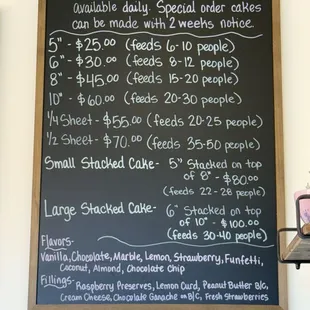 available daily. Special order cakes
can be made with 2 weeks notice.
5" - $25.00 (feeds 6-10 people)
6" - $30.00 (feeds 8-12 people)
8" - $45.00 (feeds 15-20 people)
10" - $60.00 (feeds 20-30 people)
1/4 Sheet - $55.00 (feeds 20-25 people)
1/2 Sheet - $70.00 (feeds 35-50 people)
Small Stacked Cake- 5" Stacked on top
of 8" - $80.00
(feeds 22-28 people)
Large Stacked Cake- 6" Stacked on top
of 10" - $100.00
(feeds 30-40 people)
Flavors-
Vanilla, Chocolate, Marble, Lemon, Strawberry, Funfetti,
Coconut, Almond, Chocolate Chip
Fillings-
Raspberry Preserves, Lemon Curd, Peanut Butter B/C,
Cream Cheese, Chocolate Ganache or B/C, Fresh Strawberries